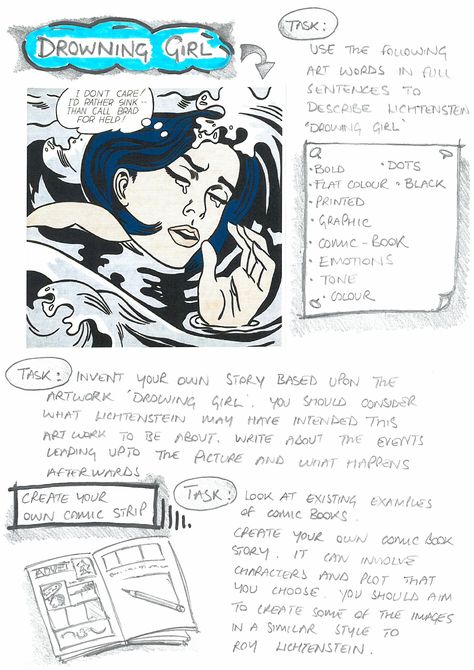 DROWNING GIRL
TASK:
USE THE FOLLOWING
ART WORDS IN FULL
SENTENCES TO
DESCRIBE LICHTENSTEIN
'DROWING GIRL'
I DON'T CARE!
I'D RATHER SINK --
THAN CALL BRAD
FOR HELP!
• BOLD
• DOTS
• FLAT COLOUR
• BLACK
• PRINTED
• GRAPHIC
• COMIC-BOOK
• EMOTIONS
• TONE
• COLOUR
TASK: INVENT YOUR OWN STORY BASED UPON THE
ARTWORK 'DROWING GIRL'. YOU SHOULD CONSIDER
WHAT LICHTENSTEIN MAY HAVE INTENDED THIS
ARTWORK TO BE ABOUT. WRITE ABOUT THE EVENTS
LEADING UPTO THE PICTURE AND WHAT HAPPENS
AFTERWARDS
CREATE YOUR
OWN COMIC STRIP
TASK: LOOK AT EXISTING EXAMPLES
OF COMIC BOOKS.
CREATE YOUR OWN COMIC BOOK
STORY. IT CAN INVOLVE
CHARACTERS AND PLOT THAT
YOU CHOOSE. YOU SHOULD AIM
TO CREATE SOME OF THE IMAGES
IN A SIMILAR STYLE TO
ROY LICHTENSTEIN.